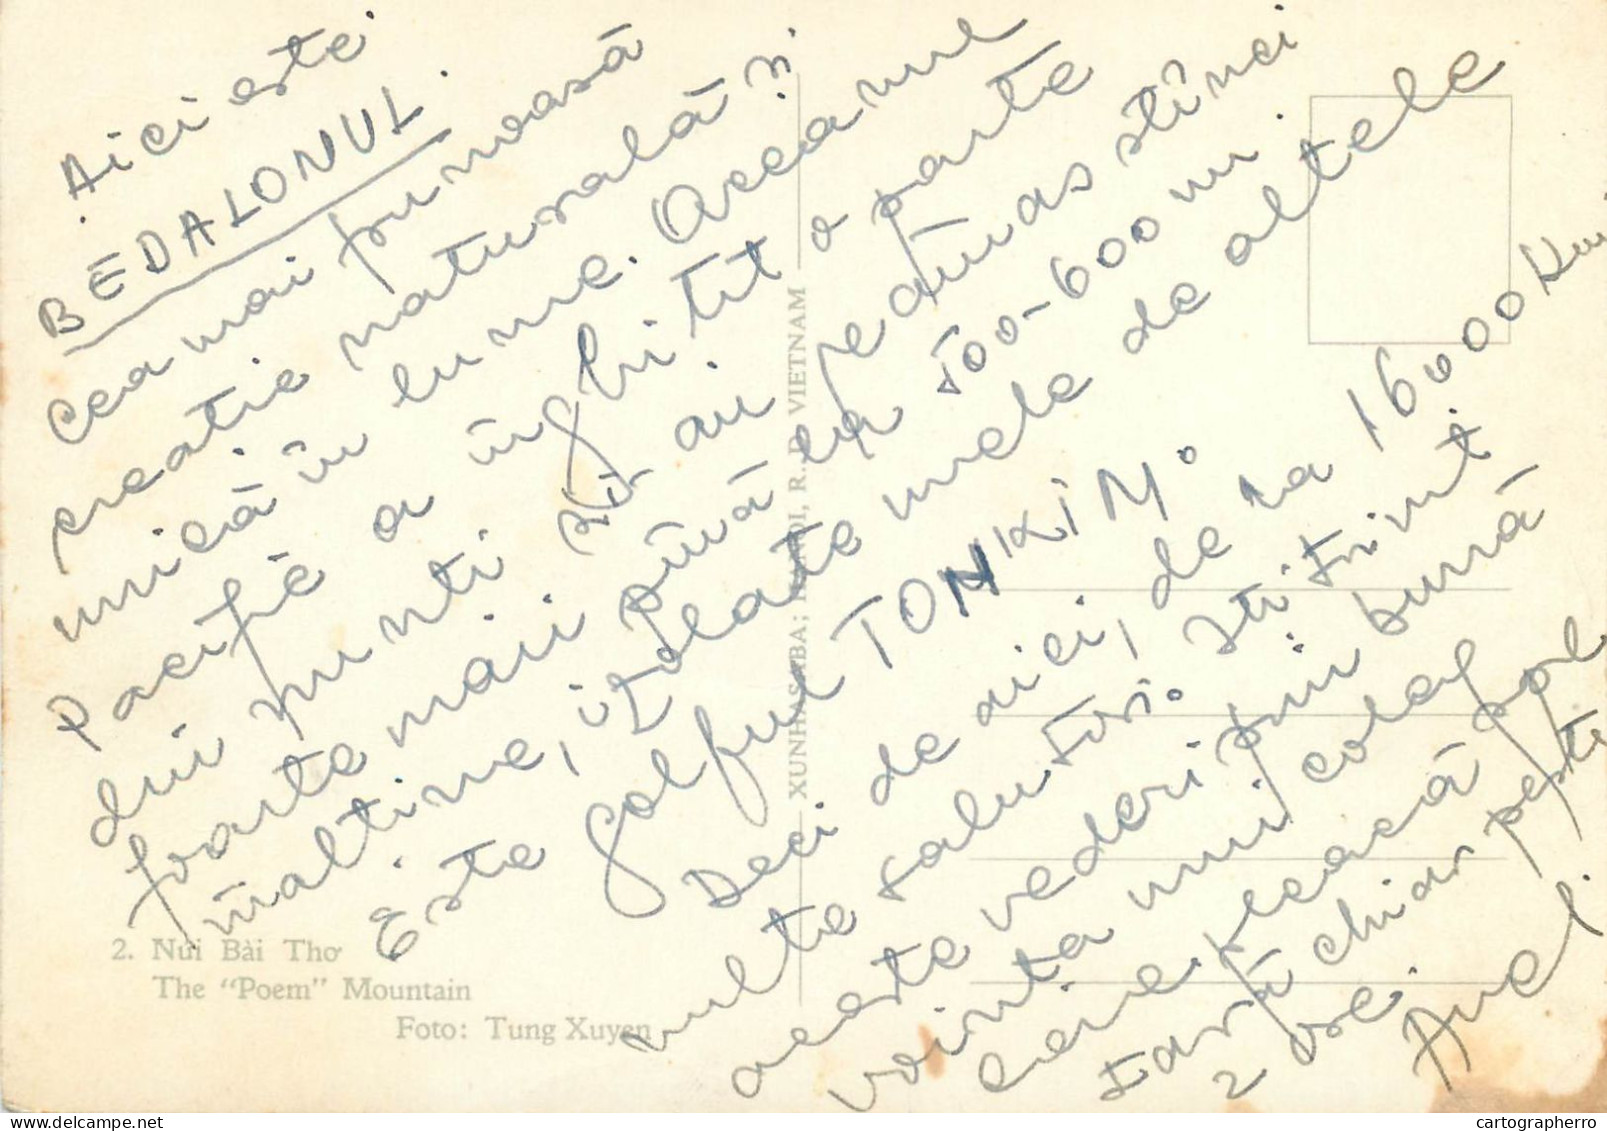 Aici este
BEDALONUL.
Cea mai frumoasă
creatie naturală și
unică în lume. Oceanul
Pacific a înghitit o parte
din munti și au
foarte mari pînă la
înaltime, izolate
rămas stînci
500-600 m.
unele de altele
Este golful TONKIM.
Deci de aici, de la 16000 Km.
multe salutări. Iti trimit
aceste vederi prin bună
vointa unui coleg
care pleacă
chiar peste
2 ore.
Anel.
2. Núi Bài Thơ
The "Poem" Mountain
Foto: Tung Xuyen
XUNHASABA; HANOI, R. D. VIETNAM
cartographerro